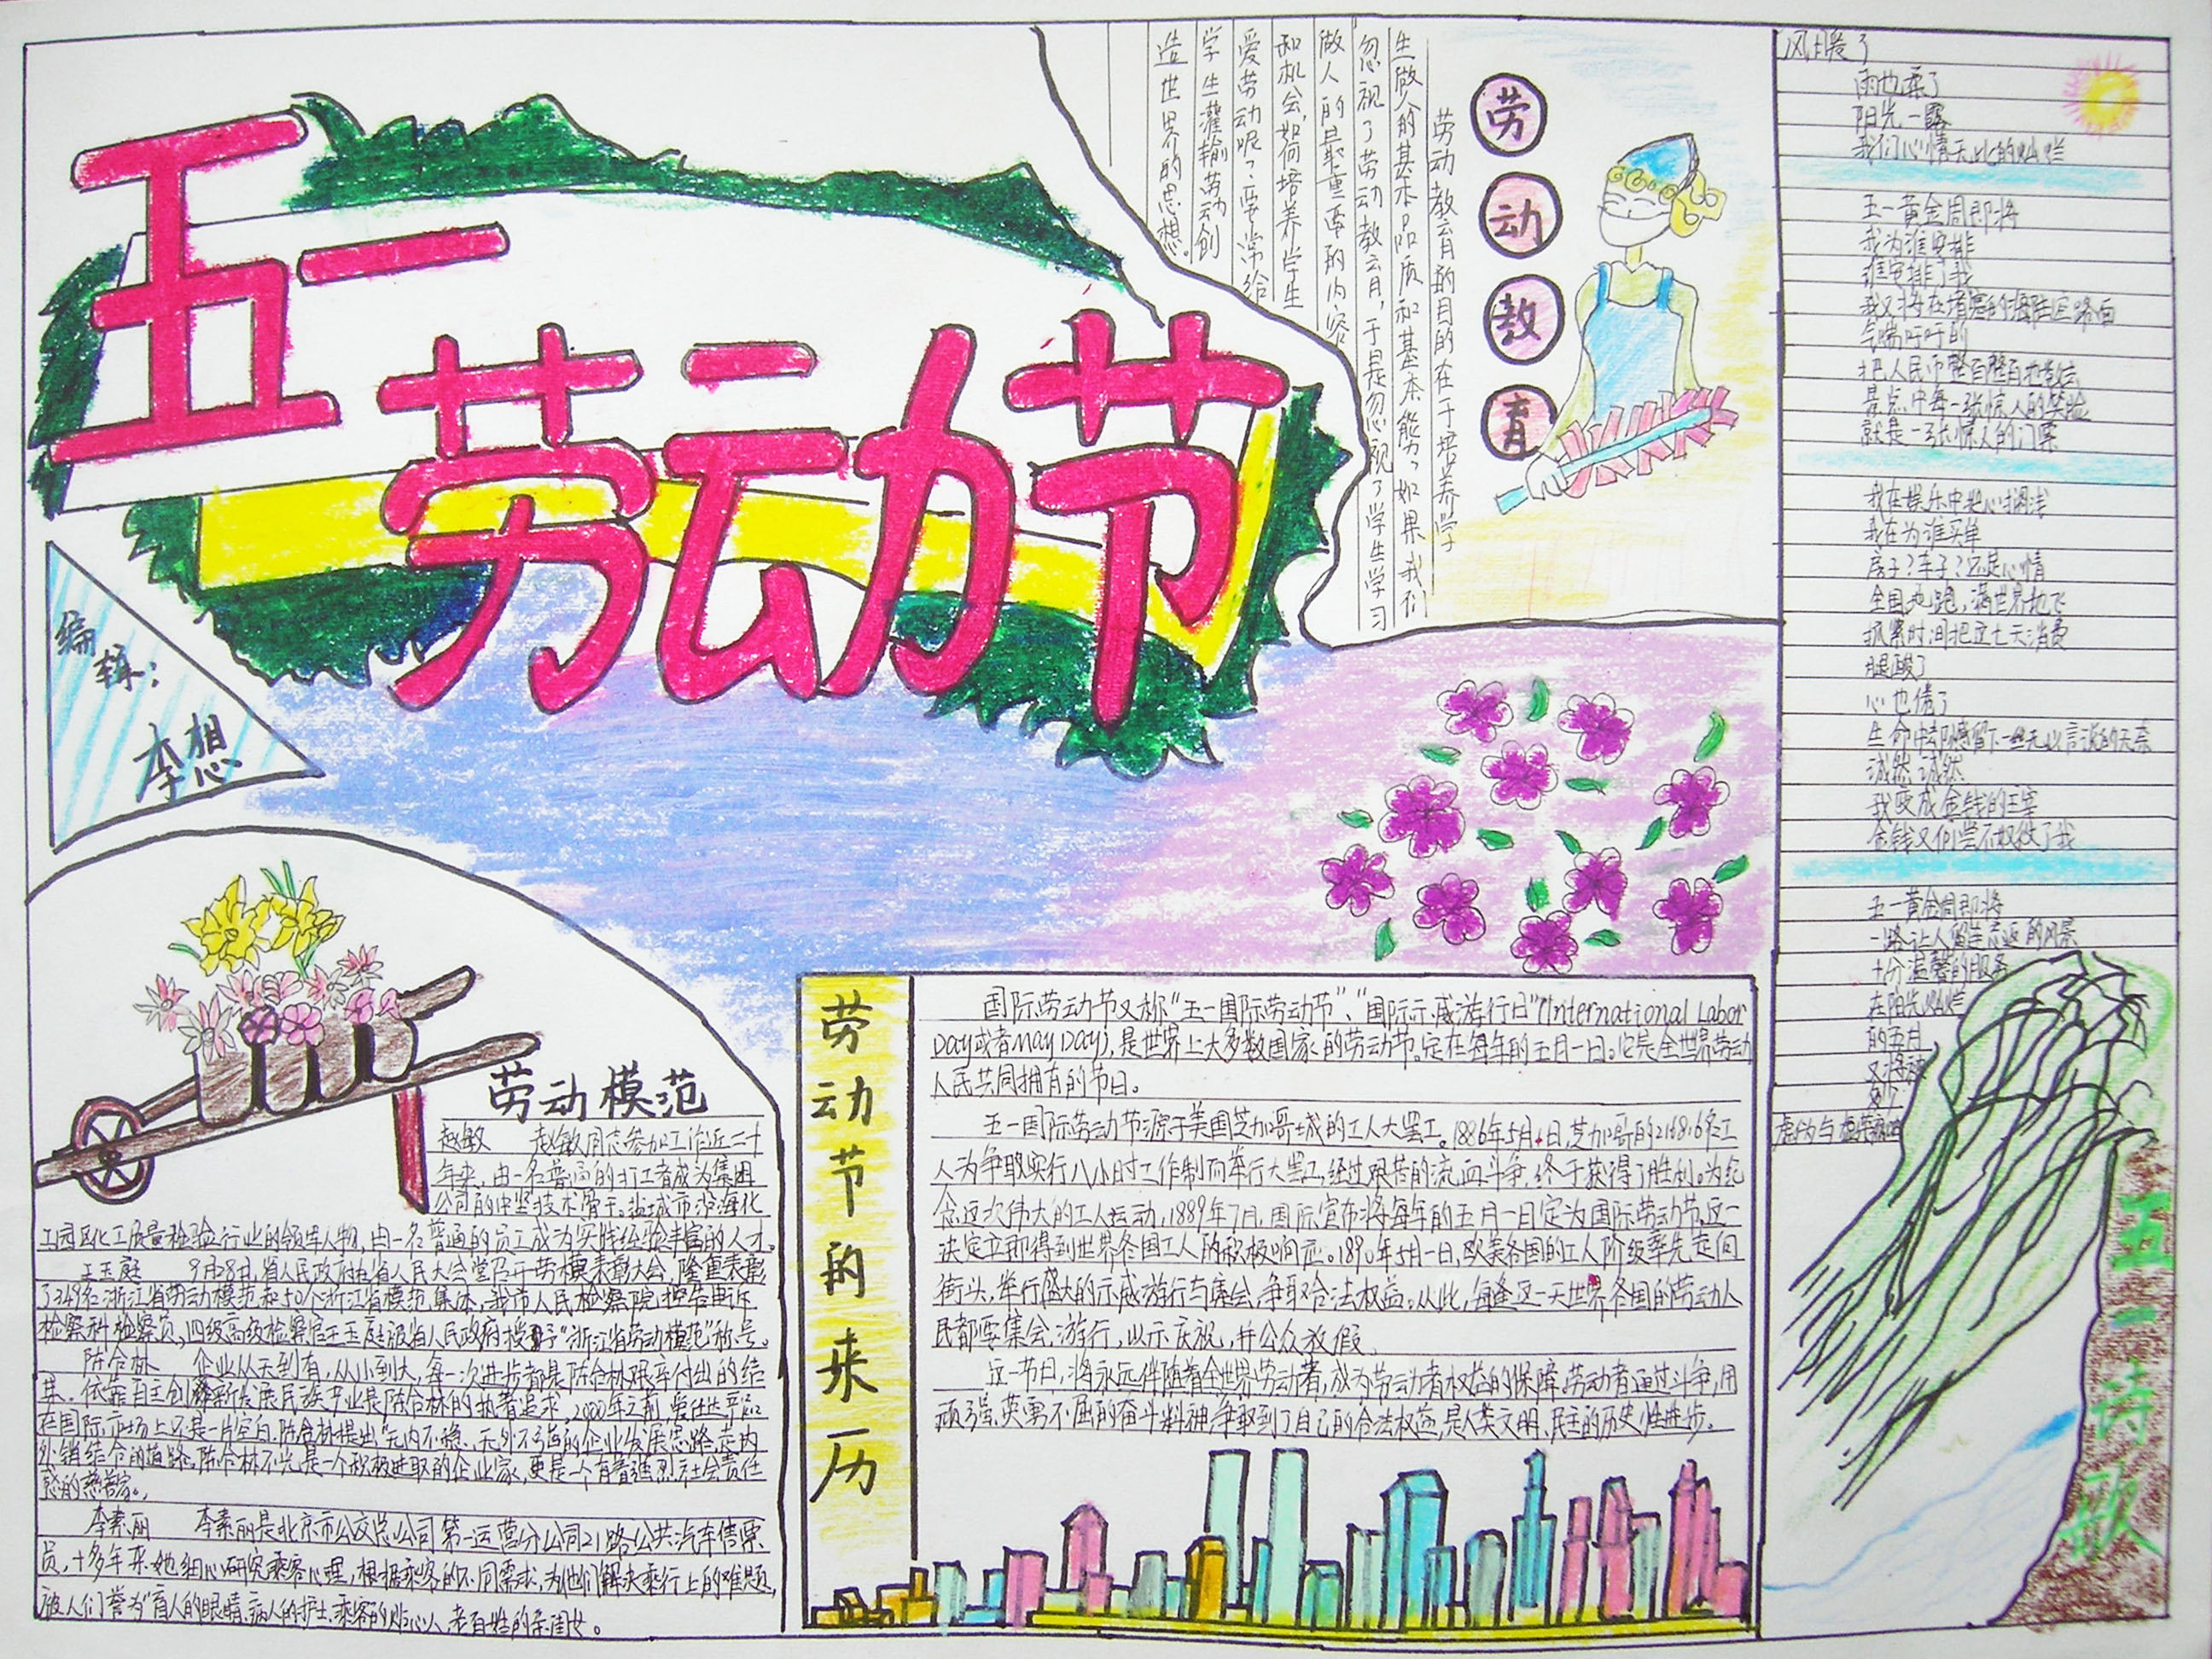 五一
劳动节
编辑：
李想
劳动教育
劳动教育的目的在于培养学
生做人的基本品质和基本能力，如果我们
忽视了劳动教育，于是忽视了学生学习
做人的最重要的内容
和机会，若何培养学生
爱劳动呢？要常给
学生灌输劳动创
造世界的思想。
劳动模范
赵敏 赵敏同志参加工作近二十
年来，由一名普通的打工者成为集团
公司的中坚技术骨干。盐城市沿海化
工园区化工质量检验行业的领军人物，由一名普通的员工成为实践经验丰富的人才。
王玉庭 9月28日，省人民政府在省人民大会堂召开劳模表彰大会，隆重表彰
了349名浙江省劳动模范和50个浙江省模范集体，我市人民检察院控告申诉
检察科检察员，四级高级检察官王玉庭被省人民政府授予“浙江省劳动模范”称号。
陈合林 企业从无到有，从小到大，每一次进步都是陈合林艰辛付出的结
果。依靠自主创新发展民族产业是陈合林的执着追求，2000年之前，爱仕达
在国际市场上还是一片空白，陈合林提出“无内不稳，无外不强的企业发展思路，走内
外销结合的道路。陈合林不光是一个积极进取的企业家，更是一个有着强烈社会责任
感的慈善家。
李素丽 李素丽是北京市公交总公司第一运营分公司21路公共汽车售票
员，十多年来她细心研究乘客心理，根据乘客的不同需求，为他们解决乘行上的难题，
被人们誉为“盲人的眼睛，病人的护士，乘客的贴心人，老百姓的亲闺女。
劳动节的来历
国际劳动节又称“五一国际劳动节”、“国际示威游行日”(International Labor
Day或者May Day)，是世界上大多数国家的劳动节。定在每年的五月一日。它是全世界劳动
人民共同拥有的节日。
五一国际劳动节源于美国芝加哥城的工人大罢工。1886年5月1日，芝加哥的216816名工
人为争取实行八小时工作制而举行大罢工，经过艰苦的流血斗争，终于获得了胜利。为纪
念这次伟大的工人运动，1889年7月，国际宣布将每年的五月一日定为国际劳动节。这一
决定立即得到世界各国工人的积极响应。1890年5月1日，欧美各国的工人阶级率先走向
街头，举行盛大的示威游行与集会，争取合法权益。从此，每逢这一天世界各国的劳动人
民都要集会、游行，以示庆祝，并公众放假。
这一节日，将永远伴随着全世界劳动者，成为劳动者权益的保障，劳动者通过斗争，用
顽强、英勇不屈的奋斗精神，争取到了自己的合法权益，是人类文明、民主的历史性进步。
风暖了
雨也柔了
阳光一露
我们心情无比的灿烂
五一黄金周即将
我为谁安排
谁安排了我
我又将在堵塞的海陆空路面
气喘吁吁的
把人民币整百整百地散去
景点中每一张惊人的笑脸
就是一张惊人的门票
我在娱乐中把心搁浅
我在为谁买单
房子？车子？还是心情
全国地跑，满世界地飞
抓紧时间把这七天消费
腿酸了
心也倦了
生命中却憾留下一丝无以言说的无奈
诚然，诚然
我变成金钱的主宰
金钱又何尝不奴役了我
五一黄金周即将
一路让人留连忘返的风景
十分温馨的服务
在阳光灿烂
的五月
又将被
五一诗歌